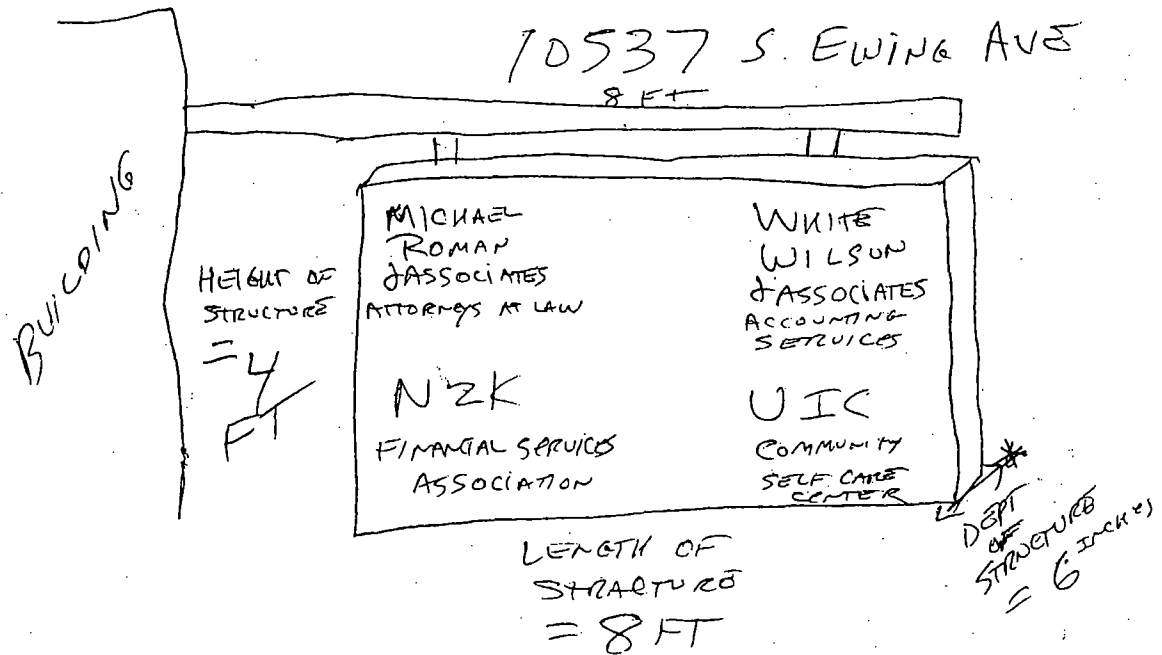 10537 S. EWING AVE
8 FT
BUILDING
HEIGHT OF
STRUCTURE
= 4
FT
MICHAEL
ROMAN
&ASSOCIATES
ATTORNEYS AT LAW
WHITE
WILSON
&ASSOCIATES
ACCOUNTING
SERVICES
NZK
FINANCIAL SERVICES
ASSOCIATION
UIC
COMMUNITY
SELF CARE
CENTER
LENGTH OF
STRACTURE
= 8 FT
DEPT
OF
STRUCTURE
= 6 INCHES